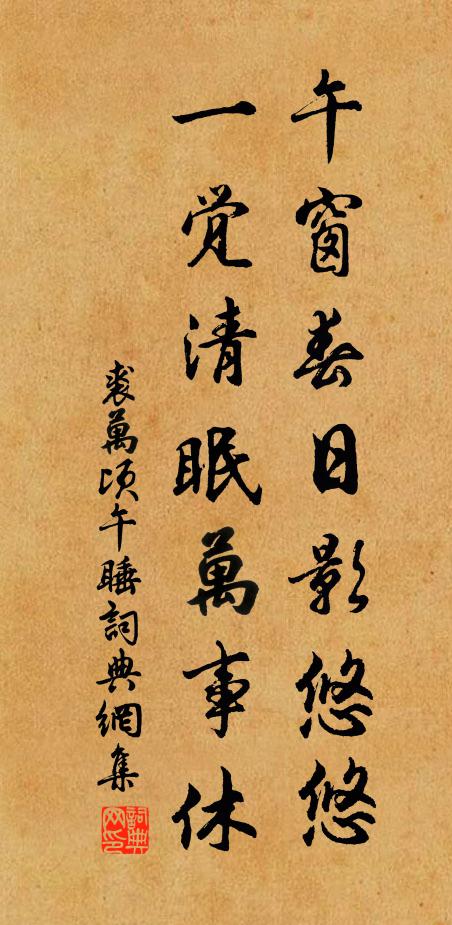 午窗春日影悠悠
一觉清眠萬事休
裘萬頃午睡詞典網集
詞典网印